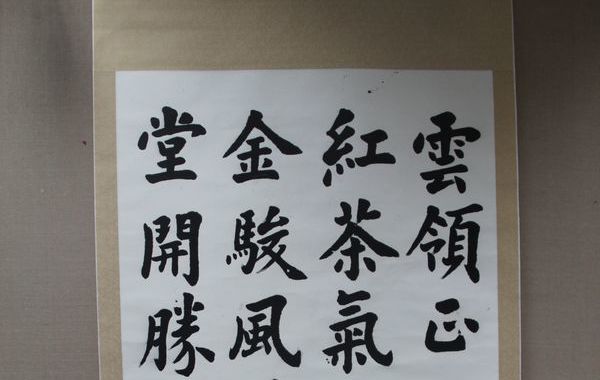 雲領正
紅茶氣
金駿風
堂開勝